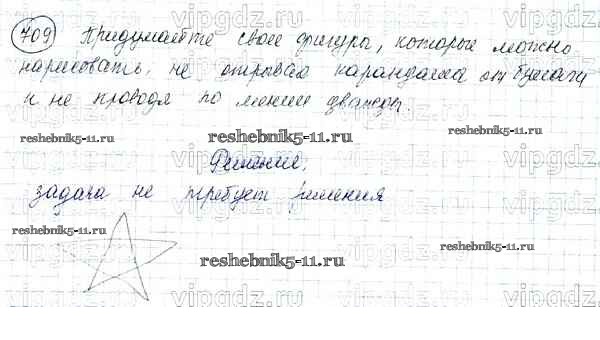 709 Придумайте свои фигуры, которые можно
нарисовать, не отрывая карандаша от бумаги
и не проводя по линии дважды.
reshebnik5-11.ru
reshebnik5-11.ru
reshebnik5-11.ru
Решение.
задача не требует решения
reshebnik5-11.ru
reshebnik5-11.ru
reshebnik5-11.ru
vipgdz.ru
vipgdz.ru
vipgdz.ru
vipgdz.ru
vipgdz.ru
vipgdz.ru